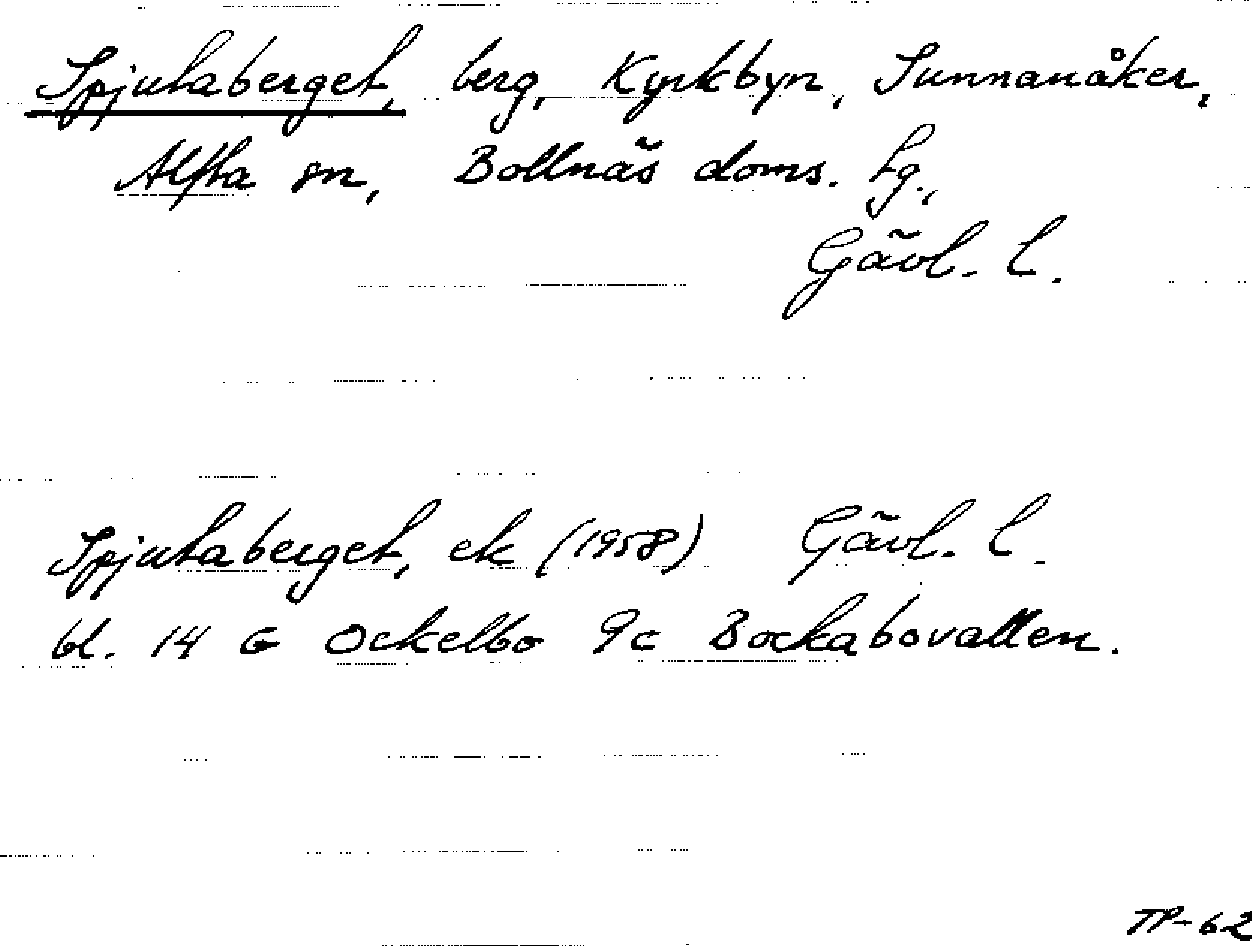 Spjutaberget, berg, Kyrkbyn, Sunnanåker,
Alfta sn, Bollnäs doms. lg.,
Gävl. l.
Spjutaberget, ek (1958) Gävl. l.
bl. 14 G Ockelbo 9c Bockabovallen.
TP-62